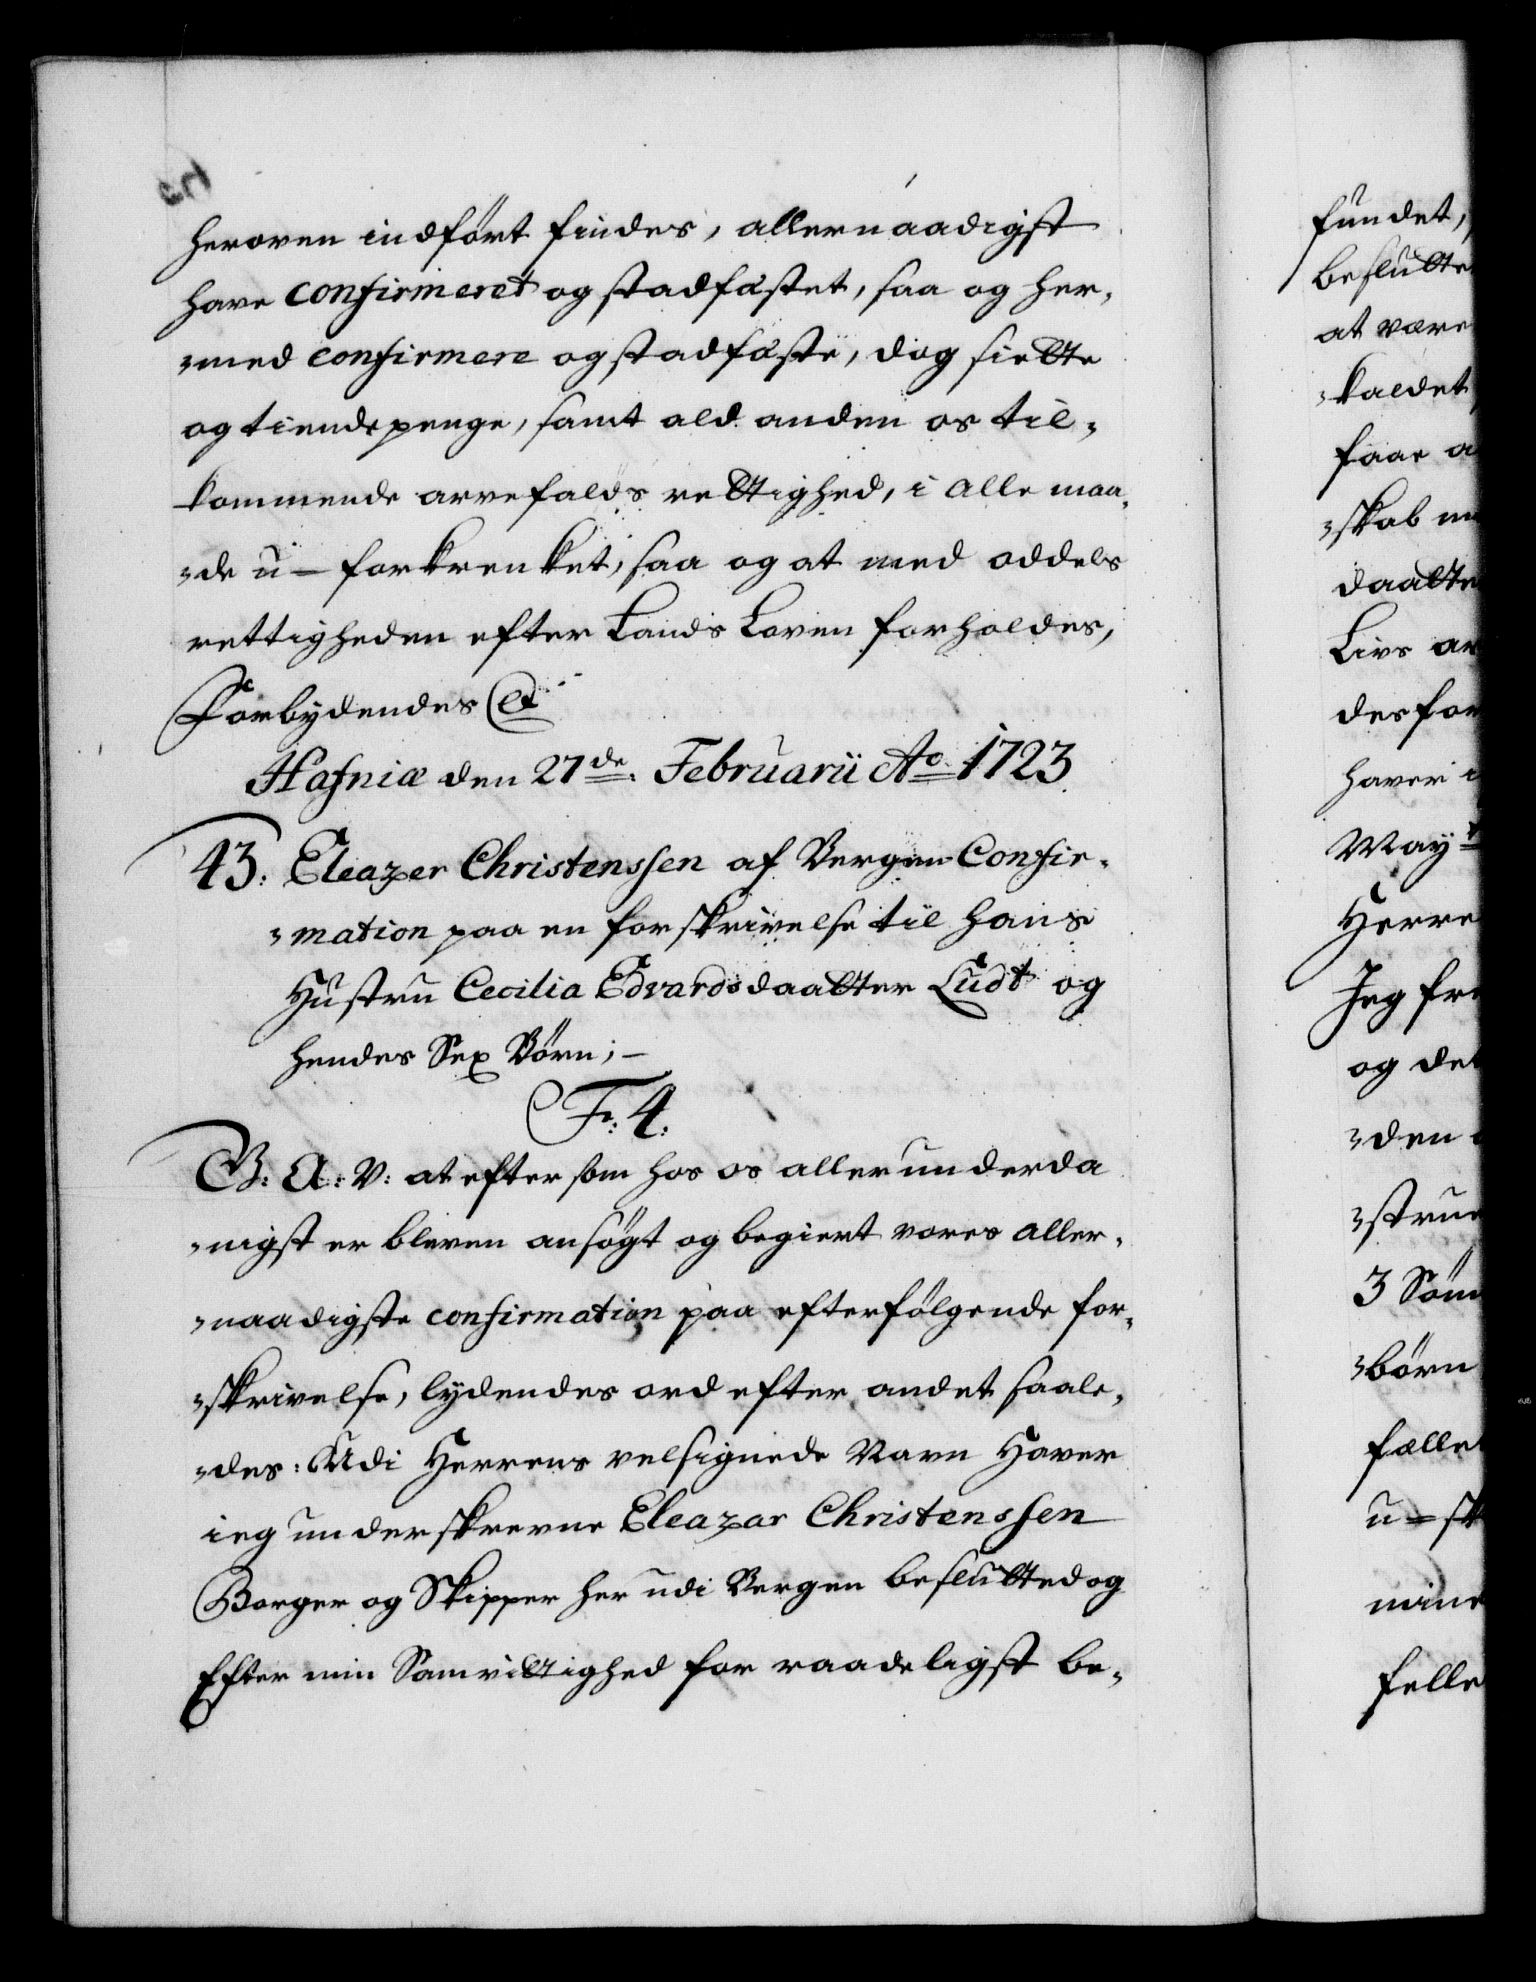 heroven indført findes, allernaadigst
have confirmeret og stadfæstet, saa og her,
„med confirmere og stadfæste, dog siette
og tiende penge, samt ald anden os til,
kommende arvefalds rettighed, i alle maa,
„de u-forkrenket, saa og at med oddels
rettigheden efter Lands Loven forholdes,
Forbydendes &
Hafniæ den 27de Februarii Ao 1723
43: Eleazer Christenssen af Bergen Confir,
„mation paa en forskrivelse til hans
Hustru Cecilia Edvardsdaatter Ludt og
hendes Sex Børn; –
Fr: 4.
G: A: V: at eftersom hos os allerunderda
„nigst er bleven ansøgt og begiert vores aller,
„naadigste confirmation paa efterfølgende for,
„skrivelse, lydendes ord efter andet saale,
„des: Udi Herrens velsignede Navn Haver
ieg underskrevne Eleazar Christenssen
Borger og Skipper her udi Bergen beslutted og
Efter min Samvittighed for raadeligst be,
fundet,
beslutte
at være
„kaldet
faar a
„skab m
daatte
Livs ar
des for
haver
May
Herre
Jeg fre
og det
„den
„strue
3 Søn
„børn
fælle
u=sk
mine
felle